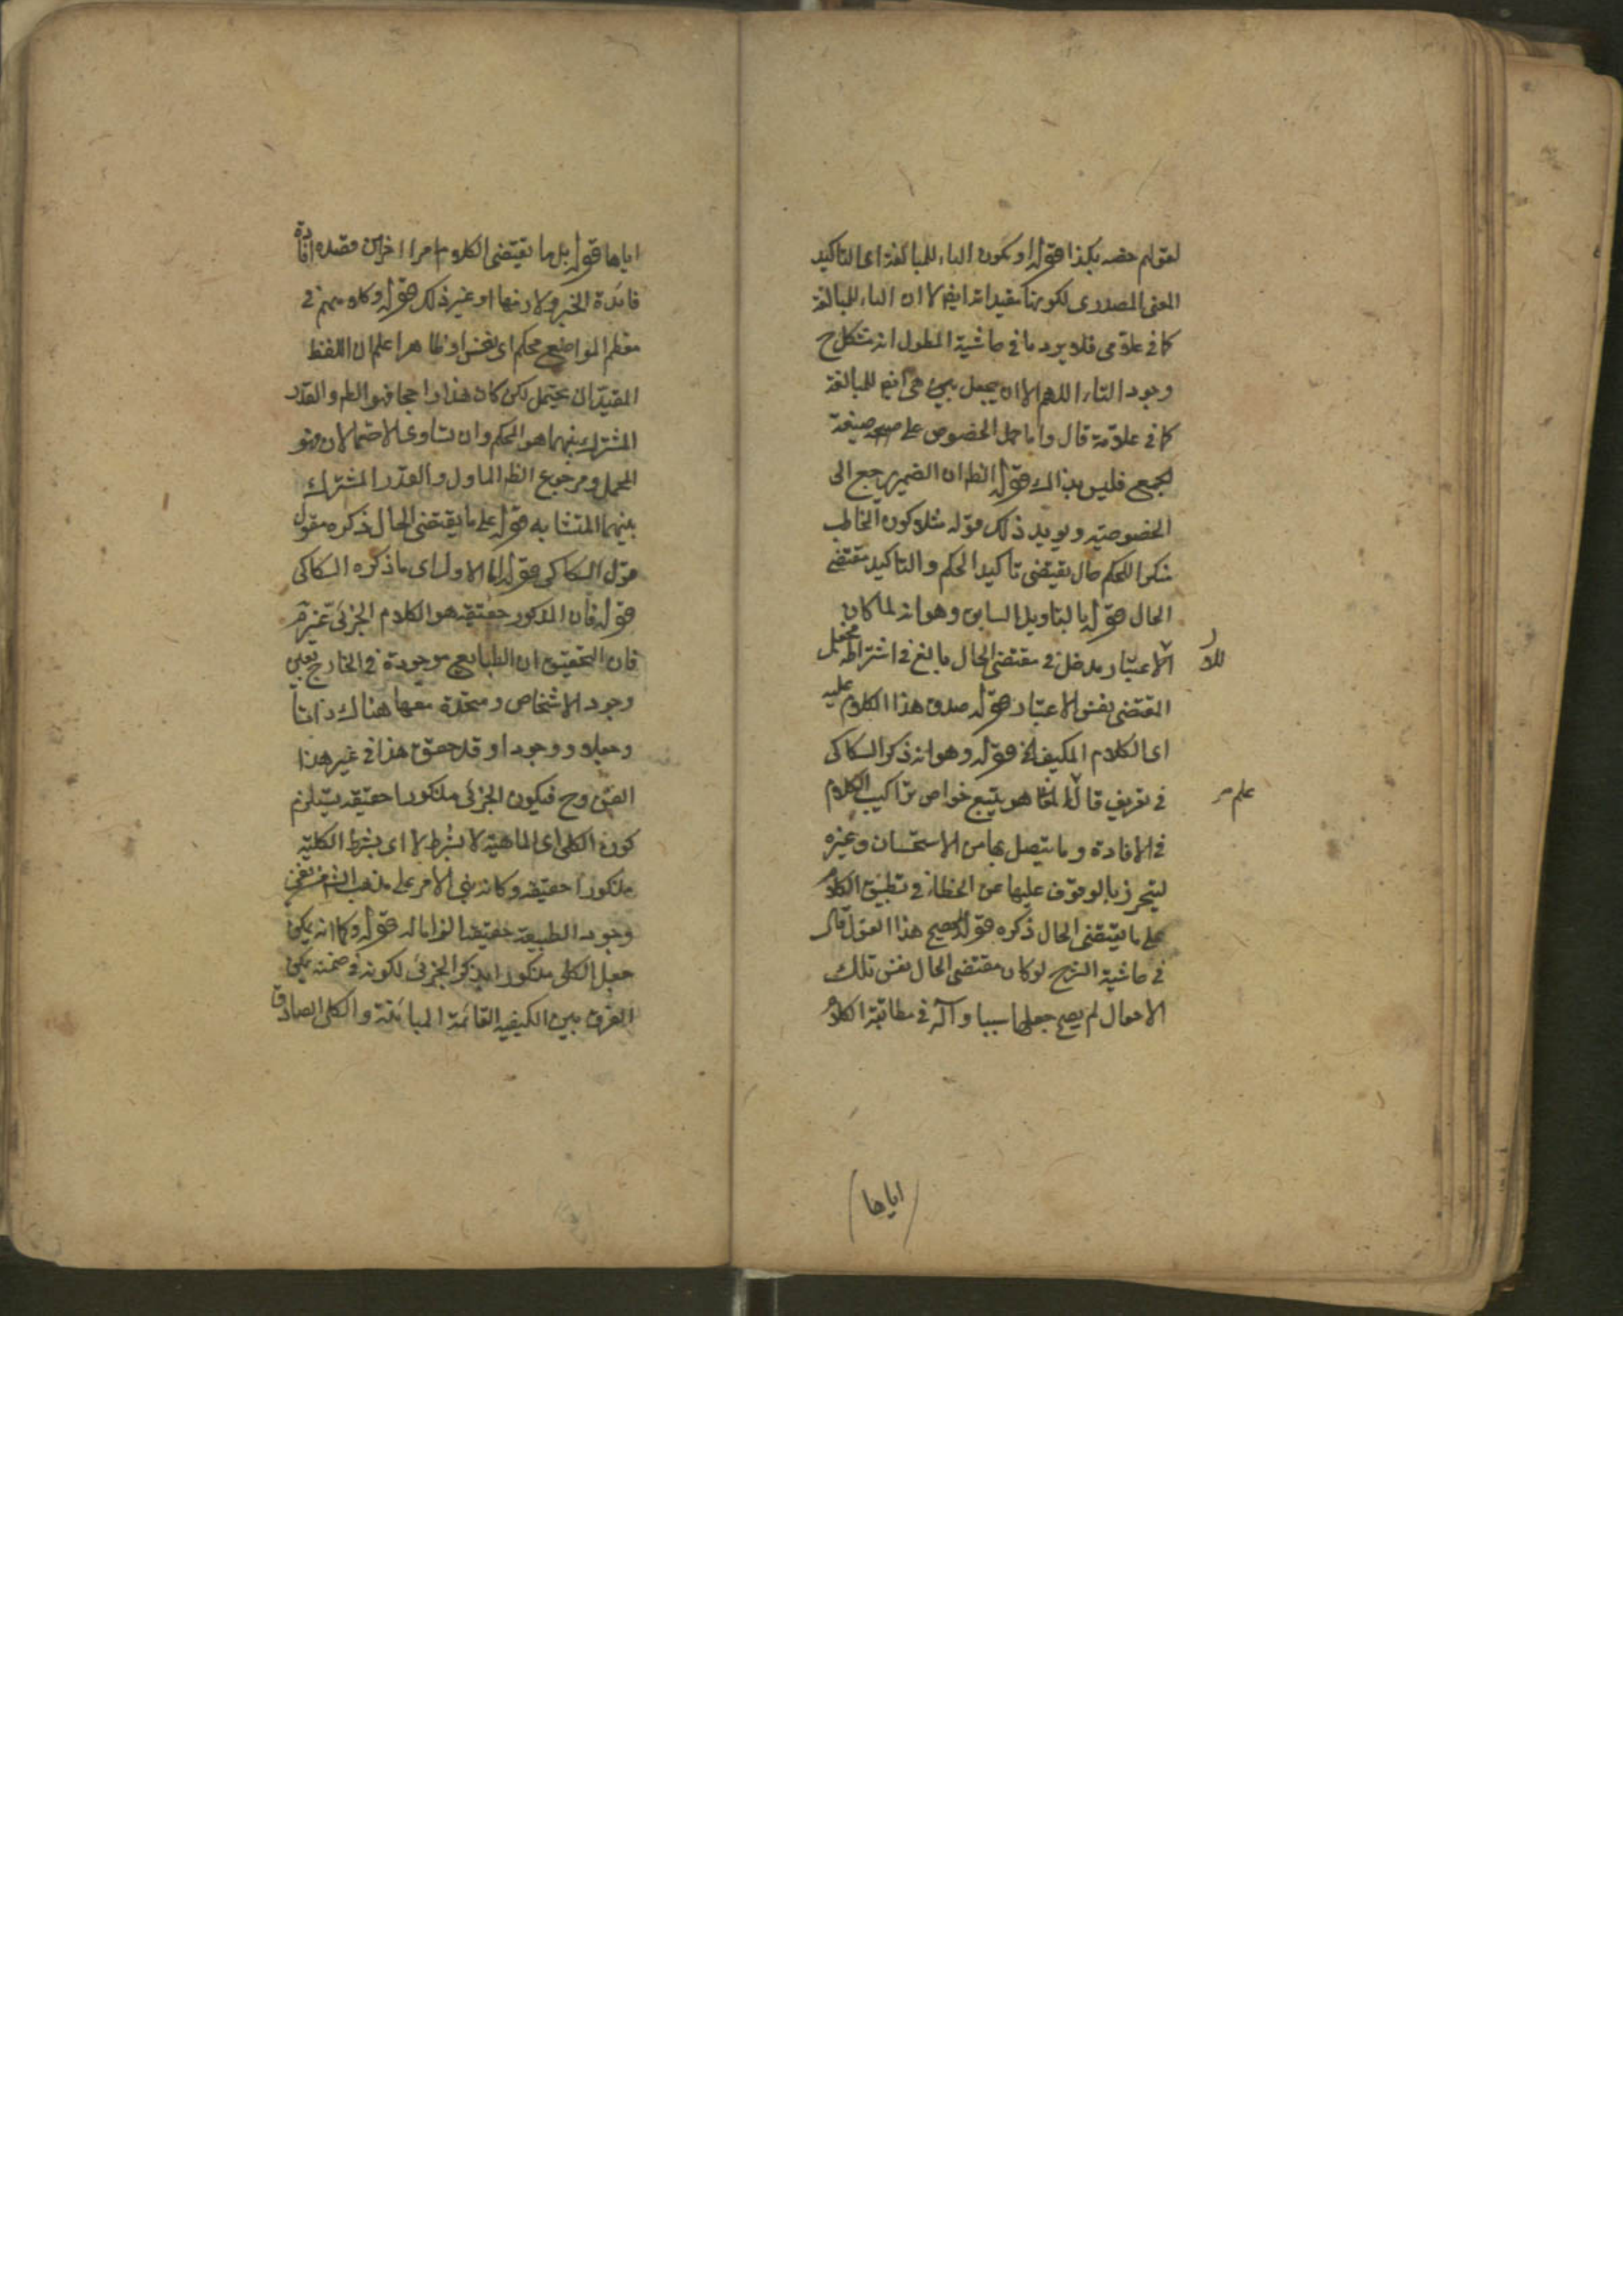 لقولهم خصه بكذا قوله او يكون الياء للمبالغة اى لتاكيد
المعنى المصدرى لكونها تفيد انه ايضا لا ان الياء للمبالغة
كما فى علامى فلا يرد ما فى حاشية المطول انه مشكل ح
وجود التاء اللهم الا ان يجعل هى ايضا للمبالغة
كما فى علامة قال واما حمل الخصوص على صيغة
الجمع فليس بذاك قوله الظ ان الضمير رجع الى
الخصوصيه ويويد ذلك قوله مثلا كون المخاطب
منكرا للحكم حال يقتضى تاكيد الحكم والتاكيد مقتضى
الحال قوله بالتاويل السابق وهو انه لما كان
للا الاعتبار مدخل فى مقتضى الحال بالغ فى اشتراطه فجعل
المقتضى نفس الاعتبار قوله صدق هذا الكلام عليه
اى الكلام المكيف الخ قوله وهو انه ذكر السكاكى
علم فى تعريف قال المعا هو يتبع خواص تراكيب الكلام
فى الافادة وما يتصل بها من الاستحسان وغيره
ليحترز بالوقوف عليها عن الخطاء فى تطبيق الكلام
على ما يقتضى الحال ذكره قوله لصح هذا القول قال
فى حاشية الشرح لو كان مقتضى الحال نفس تلك
الاحوال لم يصح جعلها سببا وآلة فى مطابقة الكلام
اياها
اياها قوله بل ما يقتضى الكلام امرا اخر من قصده افادة
فائدة الخبر ولازمها او غير ذلك قوله وكلامهم فى
معظم المواضع محكم اى نفس او ظاهر اعلم ان اللفظ
المفيد ان يحتمل لكن كان هذا راجحا فهو الظ والقدر
المشترك بينهما هو المحكم وان تساوى الاحتمالان فهو
المجمل ومرجوح الظ الماول والقدر المشترك
بينهما المتشابه قوله على ما يقتضى الحال ذكره مقول
قول السكاكى قوله اما الاول اى ما ذكره السكاكى
قوله فان المذكور حقيقه هو الكلام الجزئى
فان التحقيق ان الطبايع موجودة فى الخارج بعين
وجود الاشخاص ومتحدة معها هناك ذاتا
وجعلا ووجودا وقد حقق هذا فى غير هذا
الفن وح فيكون الجزئى مذكورا حقيقه يستلزم
كون الكلى اى الماهية لا بشرط لا اى بشرط الكلية
مذكورا حقيقه وكانه بنى الامر على مذهب
وجود الطبيعة حقيقه قوله وكما انه يمكن
جعل الكلى مذكورا بذكر الجزئى لكونه فى ضمنه يمكن
الفرق بين الكيفيه القائمة المباينة والكلى الصادق